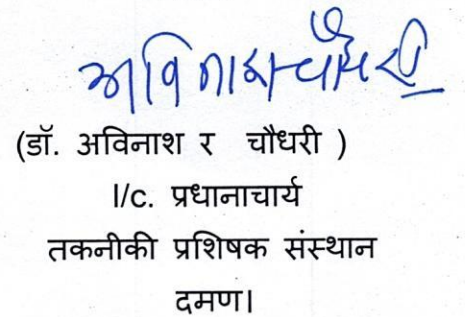 अविनाश चौधरी
(डॉ. अविनाश र चौधरी )
I/c. प्रधानाचार्य
तकनीकी प्रशिषक संस्थान
दमण।